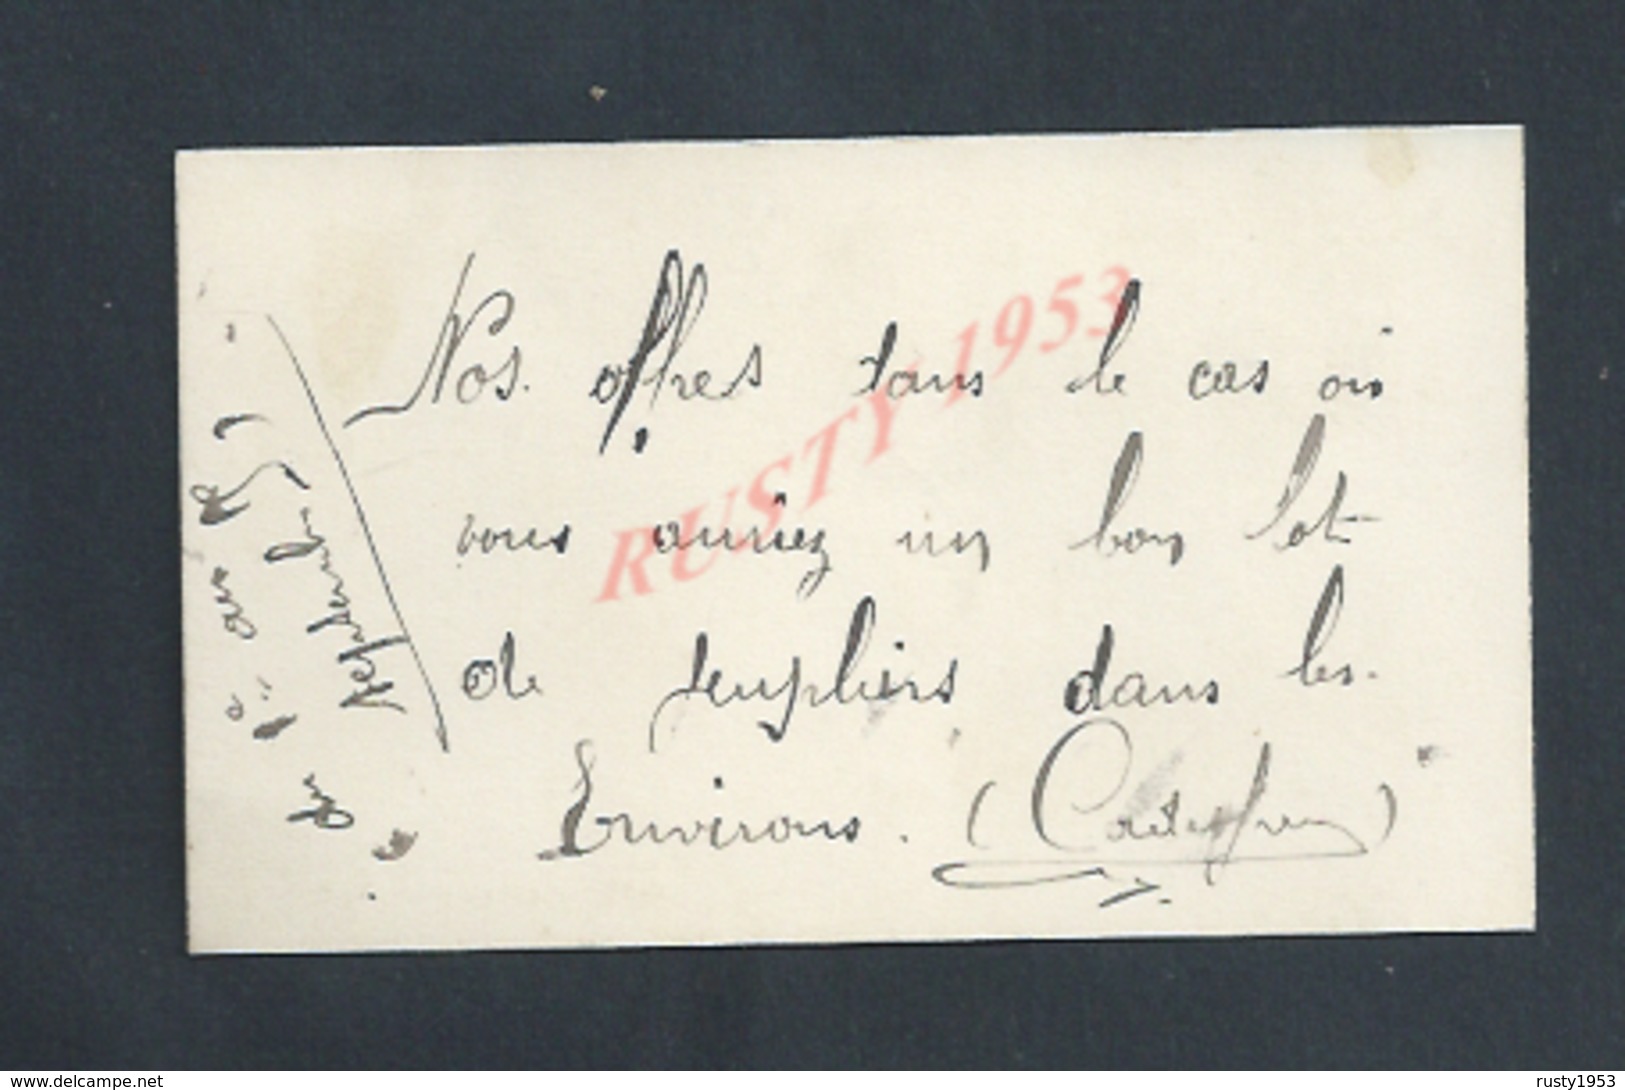 Nos. offres dans le cas où
vous auriez un bon lot
de peupliers dans les.
Environs.
du 1er au
RUSTY 1953
www.delcampe.net
rusty1953